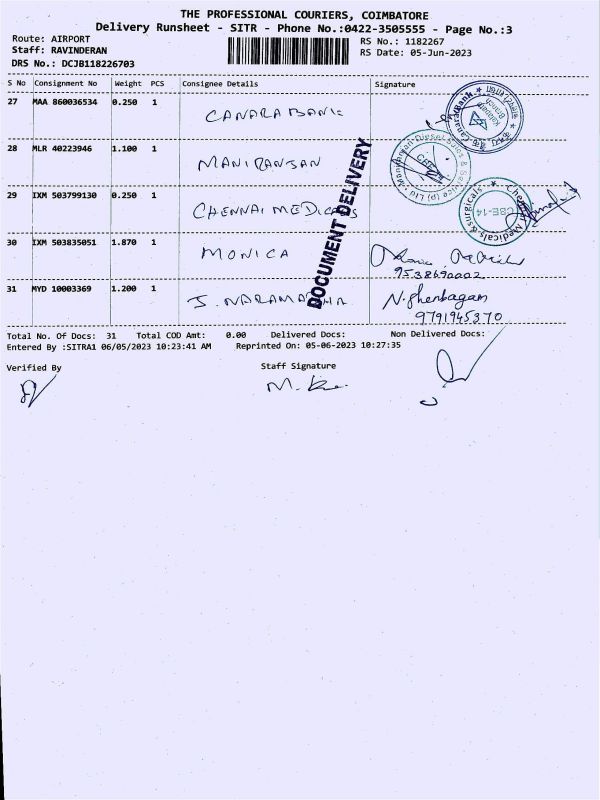 THE PROFESSIONAL COURIERS, COIMBATORE
Delivery Runsheet - SITR - Phone No.:0422-3505555 - Page No.:3
Route: AIRPORT RS No.: 1182267
Staff: RAVINDERAN RS Date: 05-Jun-2023
DRS No.: DCJB118226703
S No Consignment No Weight PCS Consignee Details Signature
27 MAA 860036534 0.250 1 CANARA BANK
Canara Bank
Branch
28 MLR 40223946 1.100 1 MANIRANJAN
29 IXM 503799130 0.250 1 CHENNAI MEDICALS
Chennai Medicals & Surgicals
CBE-14
30 IXM 503835051 1.870 1 MONICA
9538690002
31 MYD 10003369 1.200 1 J. NARAMADHA N. Shenbagam
9791945370
DOCUMENT DELIVERY
Total No. Of Docs: 31 Total COD Amt: 0.00 Delivered Docs: Non Delivered Docs:
Entered By :SITRA1 06/05/2023 10:23:41 AM Reprinted On: 05-06-2023 10:27:35
Verified By Staff Signature